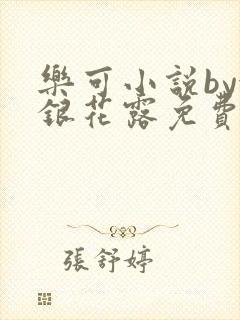 樂可小說by
銀花露免費
張舒婷